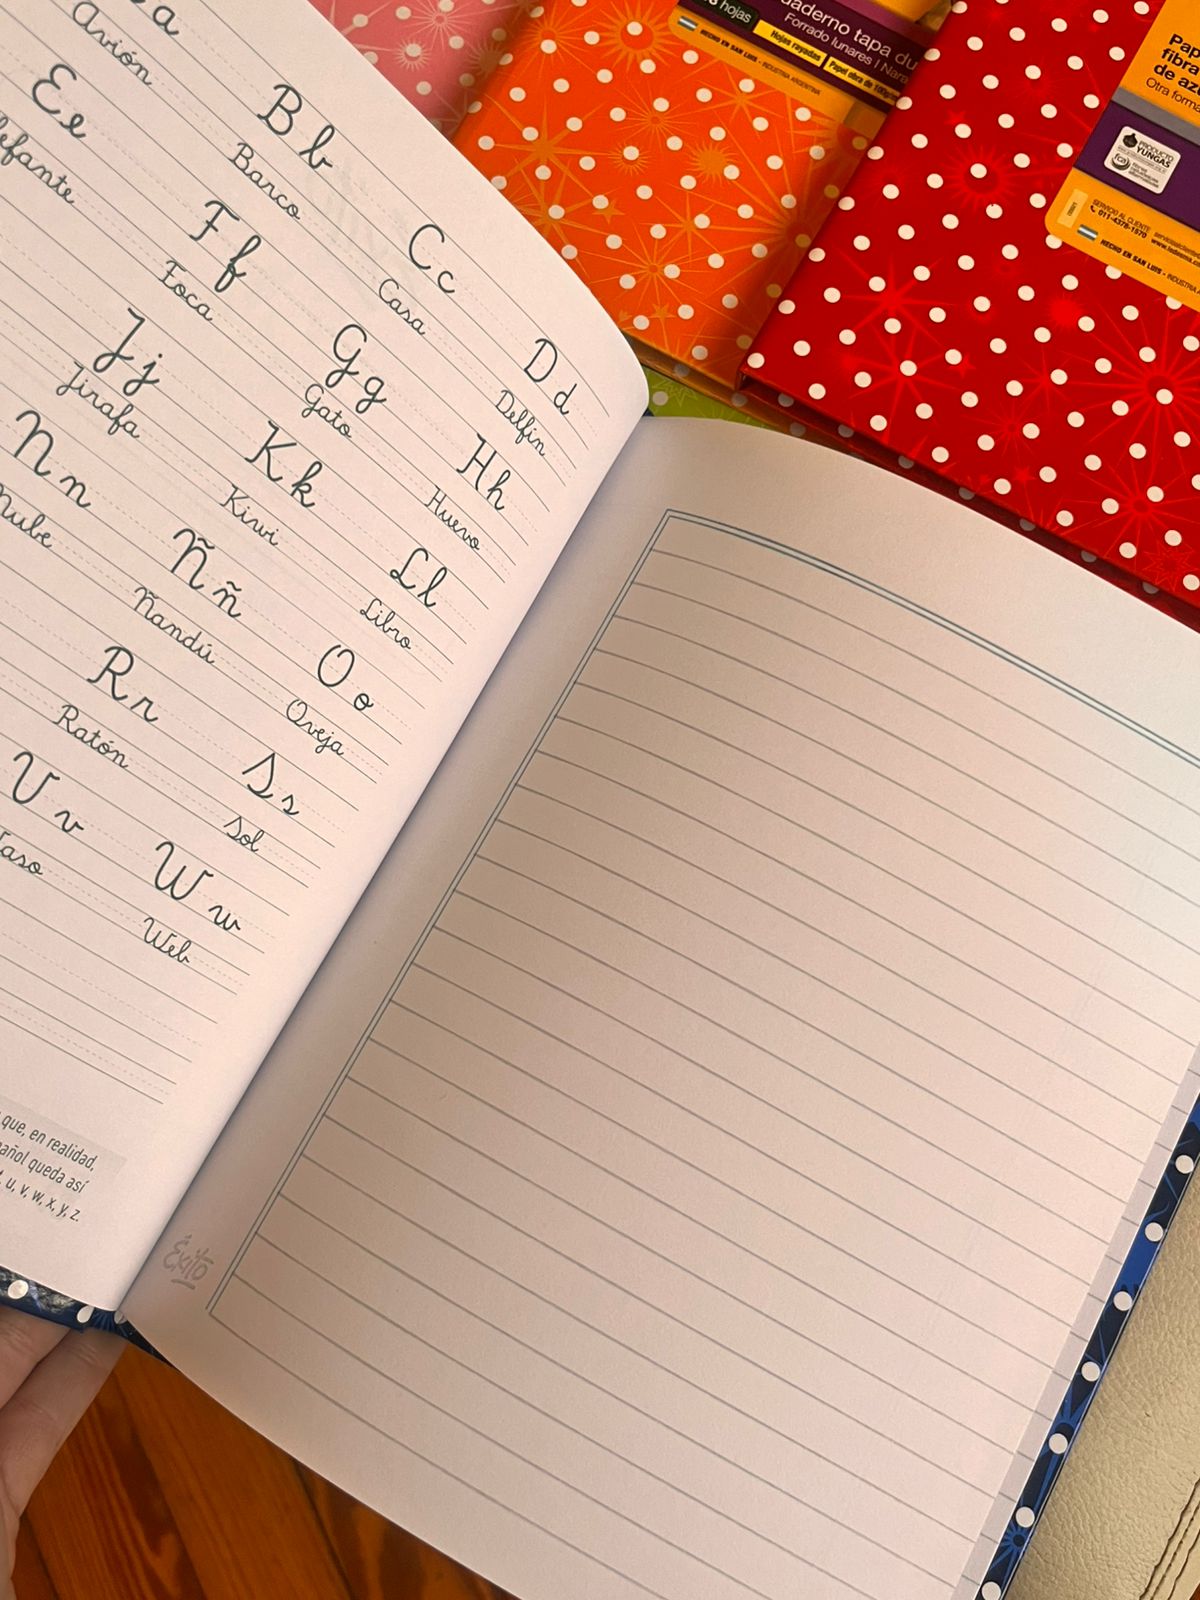 a
Avión
B b
Barco
C c
Casa
D d
Delfín
E e
F f
Foca
G g
Gato
H h
Huevo
J j
Jirafa
K k
Kiwi
L l
Libro
N n
Nube
Ñ ñ
Ñandú
O o
Oveja
R r
Ratón
S s
Sol
V v
W w
Web
que, en realidad,
queda así
u, v, w, x, y, z.
Éxito
hojas
Forrado lunares | Nara
Hojas rayadas
Papel obra de
HECHO EN SAN LUIS - INDUSTRIA ARGENTINA
fibra
Otra forma
PRODUCTO
YUNGAS
SERVICIO AL CLIENTE
011-4378-1570
HECHO EN SAN LUIS -